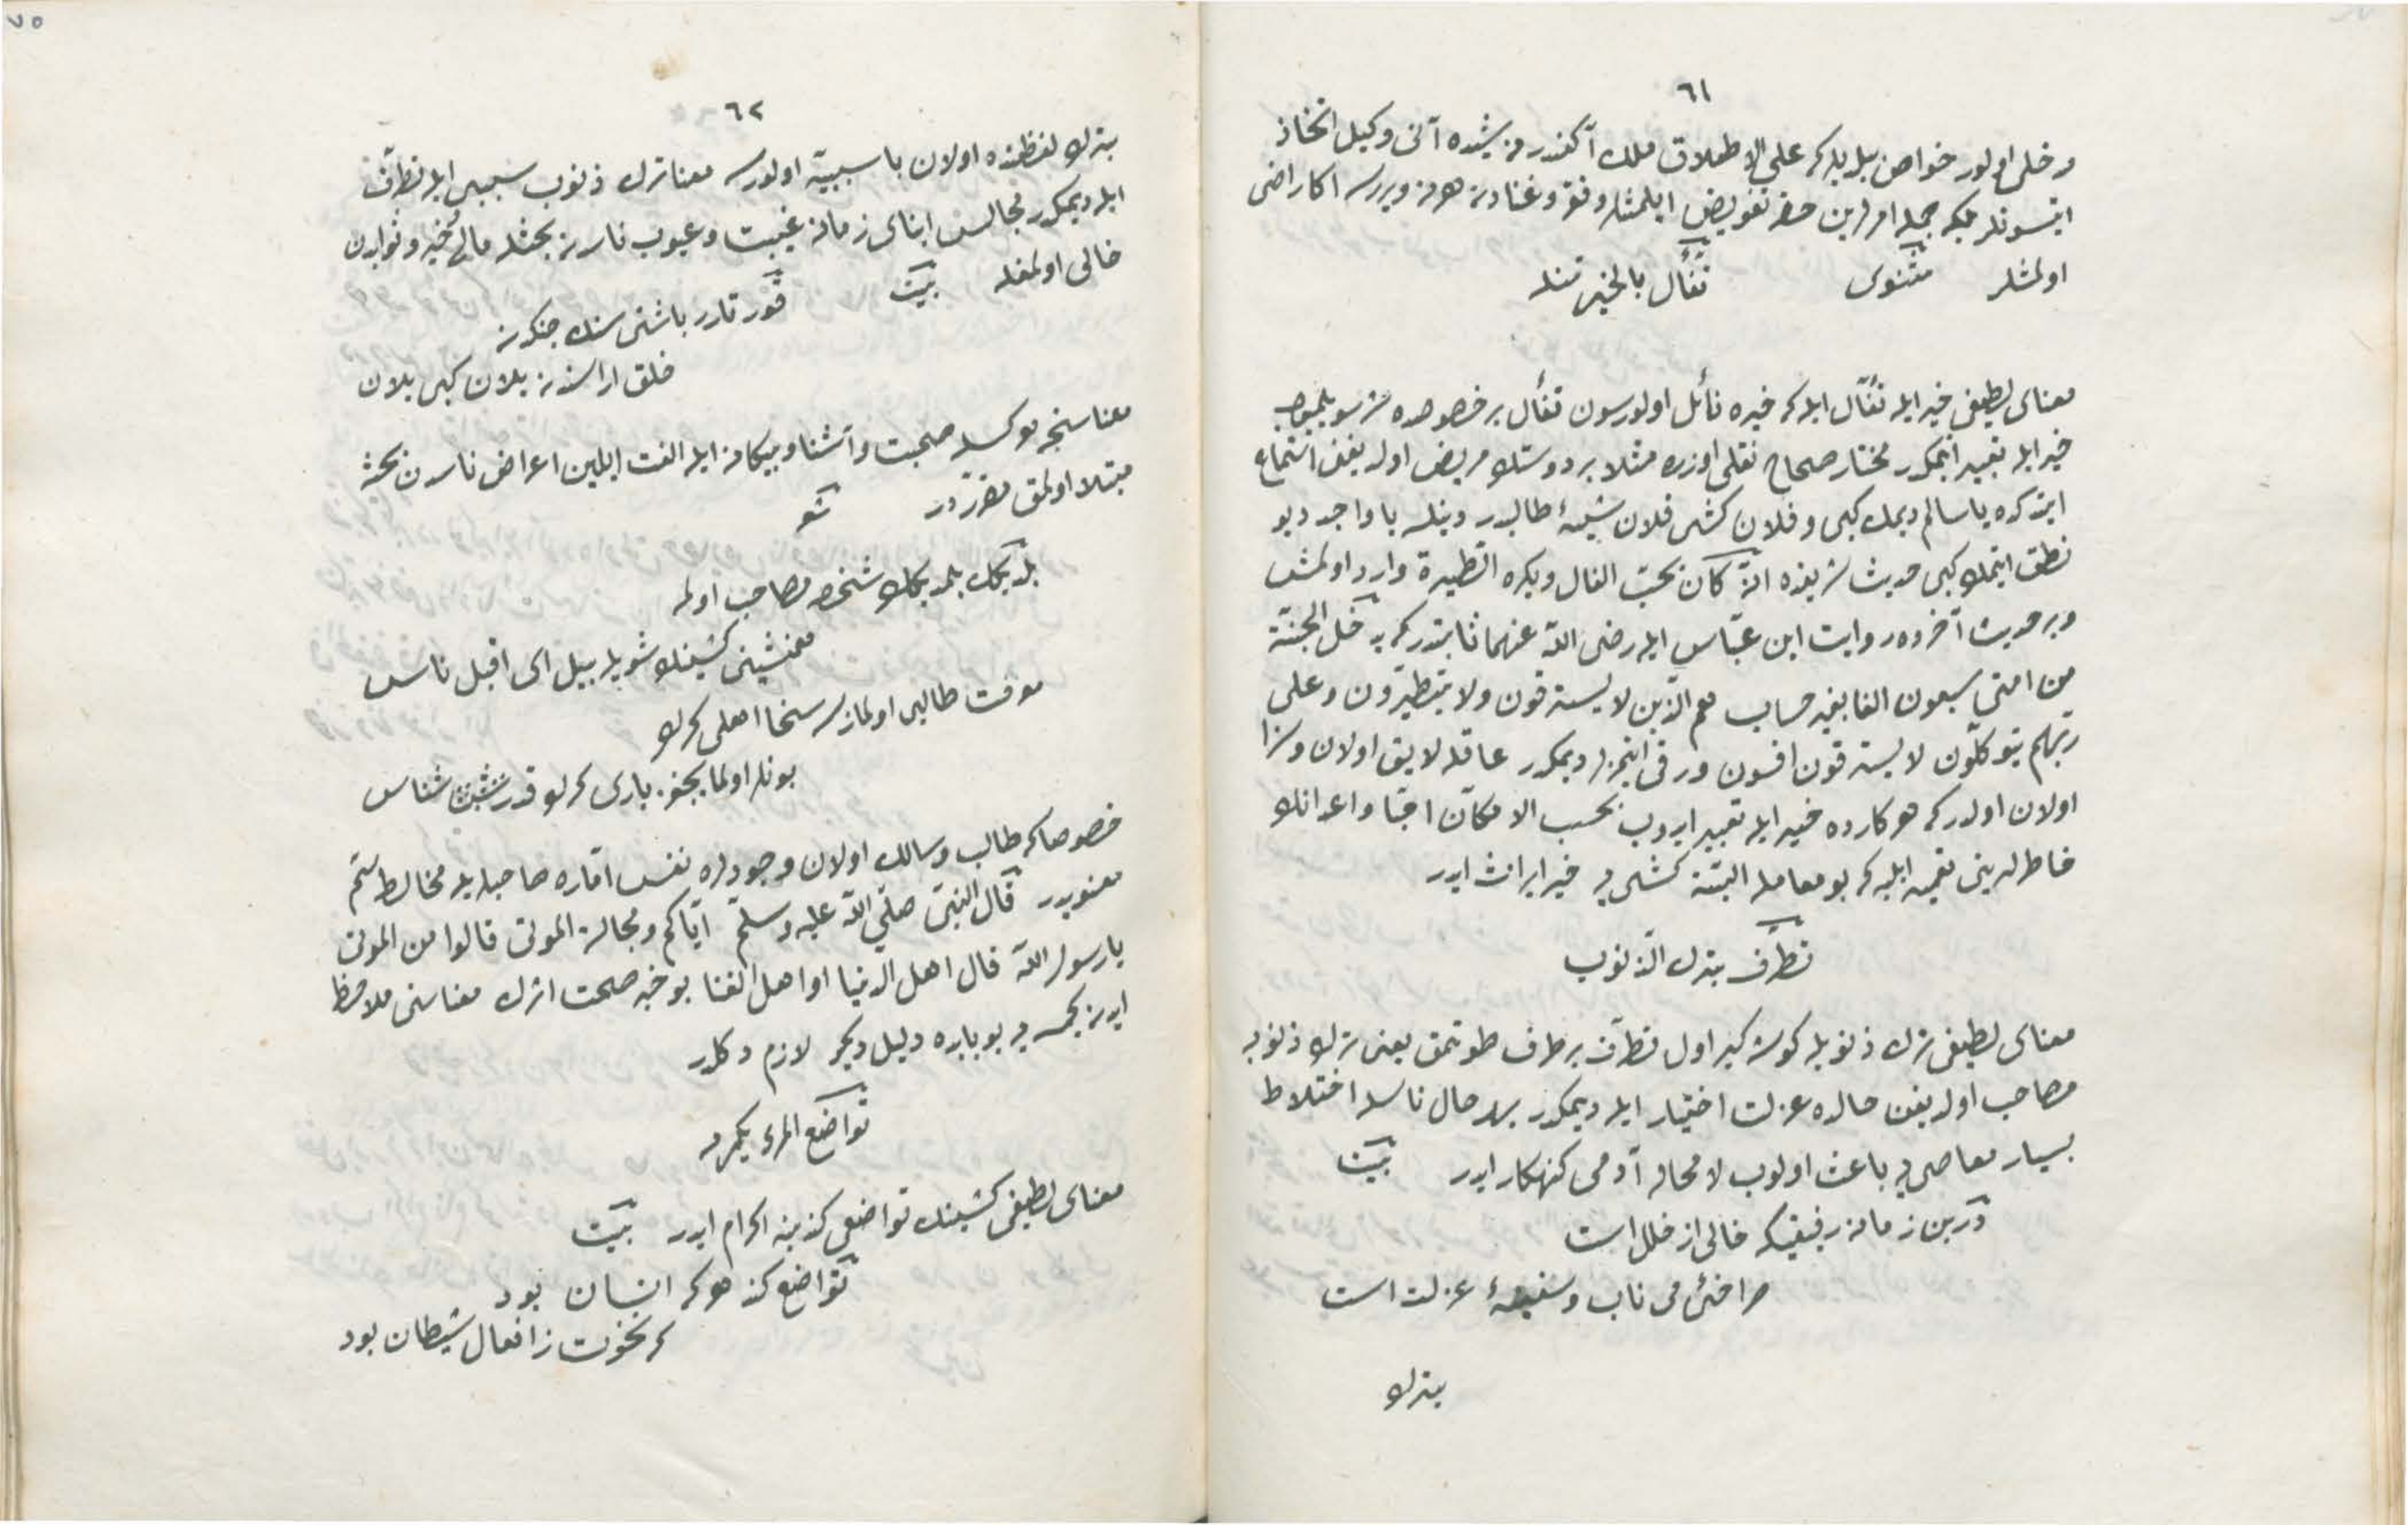 ٦١
دخلی اولور خواص بیلدیلر که علی الاطلاق ملک آکندر هر ایشده آنی وکیل اتخاذ
ایتسونلر بلکه جمله امورلرین حقه تفویض ایلمشلر و فقر و غنادن هر نه ویررسه اکا راضی
اولمشلر مثنوی تفأل بالخیر تنله
معنای لطیفی خیر ایله تفأل ایله که خیره نائل اولورسون تفأل بر خصوصده سویلیوب
خیر ایله تعبیر ایتمکدر مختار صحاح نقلی اوزره مثلا بر دوستک مریض اولدیغن استماع
ایتدکده یا سالم دیمک کبی و فلان کشی فلان شیئه طالبدر دینلسه یا واجد دیو
نطق ایتمک کبی حدیث شریفده انّه کان یحبّ الفال ویکره الطیرة وارد اولمشدر
و بر حدیث آخرده روایت ابن عبّاس ایله رضی اللّه عنهما ثابتدر که یدخل الجنّة
من امتی سبعون الفا بغیر حساب هم الّذین لا یسترقون ولا یتطیّرون وعلی
ربّهم یتوکّلون لا یسترقون افسون و رقی ایتمزلر دیمکدر عاقله لایق اولان و سزا
اولان اولدر که هر کارده خیر ایله تعبیر ایدوب بحسب الامکان احبّا و اعدانک
خاطرلرینی تعمیر ایلیه که بو معامله البتّه کشی یه خیر ایراث ایدر
تطرّف بترک الذّنوب
معنای لطیفی ترک ذنوبله کوشه کیر اول تطرّف بر طرف طوتمق یعنی ترک ذنوبه
مصاحب اولدیغن حالده عزلت اختیار ایله دیمکدر بهر حال ناسله اختلاط
بسیار معاصی یه باعث اولوب لا محاله آدمی کنهکار ایدر بیت
درین زمانه رفیقیکه خالی از خلل است
صراحی می ناب و سفینهٔ غزلست است
بترک
٦٢
بترک لفظنده اولان با سببیّه اولورسه معنا ترک ذنوب سببی ایله تطرّف
ایله دیمکدر مجالس ابنای زمانه غیبت و عیوب ناسدن بحثله مالی خیر و ثوابدن
خالی اولمغله بیت قورتارر باشنی سنک جنکدن
خلق اراسندن یلان کبی یلان
معناسنجه هر کسله صحبت و آشنا و بیکانه ایله الفت ایلیین اعراض ناسدن بحثه
مبتلا اولمق مقرّردر شعر
بلدیکک بلمدیکک شخصه مصاحب اولمه
همنشینی کشینک شویله بیل ای اقبل ناس
معرفت طالبی اولمازسه سخا اهلی کرک
بونلر اولمایجق باری کرک قدر شناس
خصوصا که طالب و سالک اولان وجودلره نفس امّاره صاحبلریله مخالطه سمّ
معنویدر قال النّبی صلّی اللّه علیه وسلّم ایّاکم ومجالسة الموتی قالوا من الموتی
یا رسول اللّه قال اهل الدنیا او اهل الغنا بو خبر صحّت اثرک معناسنی ملاحظه
ایدن کیمسه یه بو بابده دلیل دیکر لازم دکلدر
تواضع المرء یکرمه
معنای لطیفی کشینک تواضعی کندینه اکرام ایدر بیت
تواضع کند هر که انسان بود
که نخوت ز افعال شیطان بود